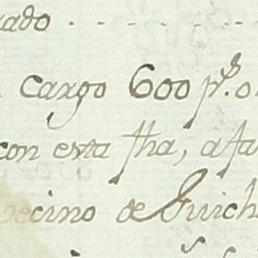 rado
cargo 600 p.s
con esta fha, a fa
vecino de Guich